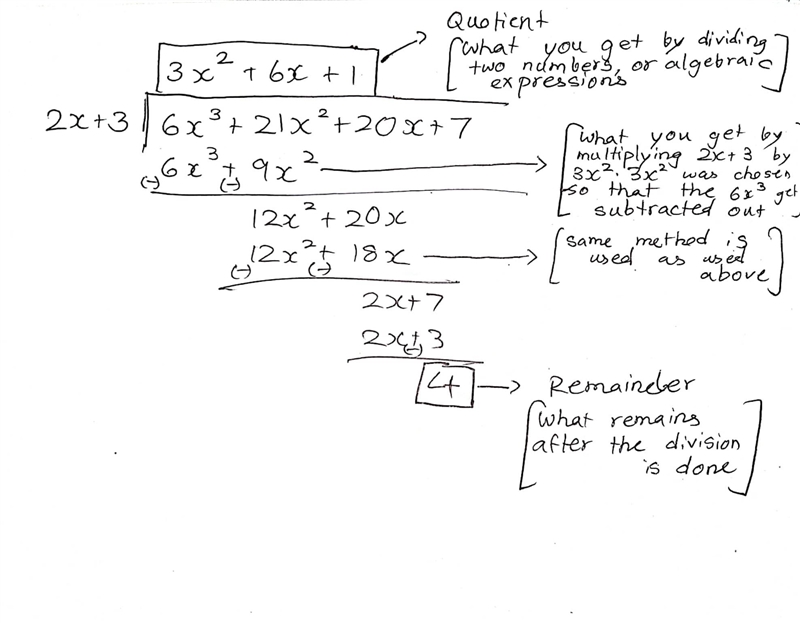 Quotient
[What you get by dividing
two numbers, or algebraic
expressions]
3x² + 6x + 1
2x+3 | 6x³ + 21x² + 20x + 7
6x³ + 9x²
(-) (-)
[What you get by
multiplying 2x+3 by
3x². 3x² was chosen
so that the 6x³ get
subtracted out]
12x² + 20x
12x² + 18x
(-) (-)
[same method is
used as used
above]
2x+7
2x+3
(-)
4 → Remainder
[What remains
after the division
is done]